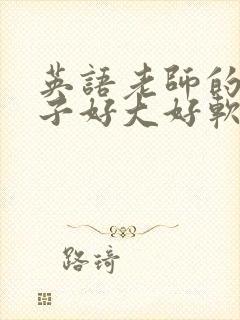 英語老師的
子好大好軟
路琦